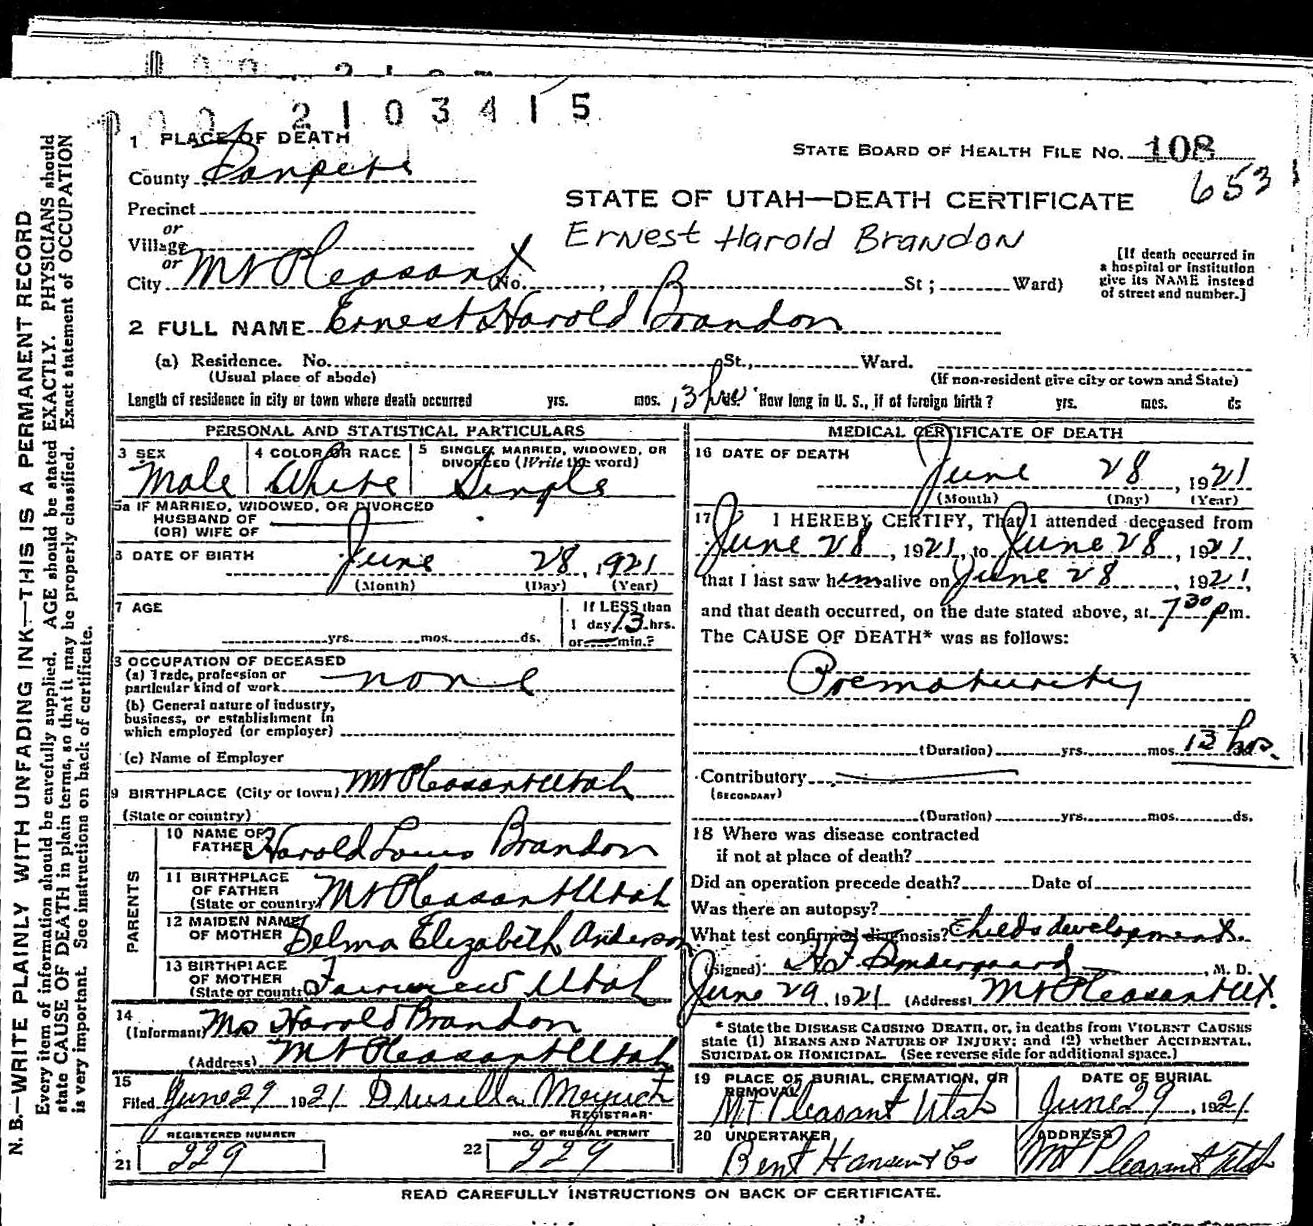 2103415
1 PLACE OF DEATH
STATE BOARD OF HEALTH FILE NO. 108
County Sanpete
653
STATE OF UTAH—DEATH CERTIFICATE
Precinct
or
Village
Ernest Harold Brandon
or
City Mt Pleasant X (No. , St ; Ward)
[If death occurred in
a hospital or institution
give its NAME instead
of street and number.]
2 FULL NAME Ernest Harold Brandon
(a) Residence. No. St., Ward.
(Usual place of abode)
(If non-resident give city or town and State)
Length of residence in city or town where death occurred yrs. mos. 13 hrs. How long in U. S., if of foreign birth? yrs. mos. ds
PERSONAL AND STATISTICAL PARTICULARS
3 SEX Male
4 COLOR OR RACE White
5 SINGLE, MARRIED, WIDOWED, OR
DIVORCED (Write the word)
Single
5a IF MARRIED, WIDOWED, OR DIVORCED
HUSBAND OF
(OR) WIFE OF
6 DATE OF BIRTH June 28, 1921
(Month) (Day) (Year)
7 AGE
yrs. mos. ds.
If LESS than
1 day 13 hrs.
or min.?
8 OCCUPATION OF DECEASED
(a) Trade, profession or
particular kind of work none
(b) General nature of industry,
business, or establishment in
which employed (or employer)
(c) Name of Employer
9 BIRTHPLACE (City or town) Mt Pleasant Utah
(State or country)
PARENTS
10 NAME OF
FATHER Harold Louis Brandon
11 BIRTHPLACE
OF FATHER
(State or country) Mt Pleasant Utah
12 MAIDEN NAME
OF MOTHER Delma Elizabeth Anderson
13 BIRTHPLACE
OF MOTHER
(State or country) Fairview Utah
14
(Informant) Mrs Harold Brandon
(Address) Mt Pleasant Utah
15
Filed June 29 1921 Drusilla
REGISTRAR.
REGISTERED NUMBER
21 229
NO. OF BURIAL PERMIT
22 229
MEDICAL CERTIFICATE OF DEATH
16 DATE OF DEATH
June 28, 1921
(Month) (Day) (Year)
17 I HEREBY CERTIFY, That I attended deceased from
June 28, 1921, to June 28, 1921,
that I last saw him alive on June 28, 1921,
and that death occurred, on the date stated above, at 7 30 pm.
The CAUSE OF DEATH* was as follows:
Prematurity
(Duration) yrs. mos. 13 hrs.
Contributory
(SECONDARY)
(Duration) yrs. mos. ds.
18 Where was disease contracted
if not at place of death?
Did an operation precede death? Date of
Was there an autopsy?
What test confirmed diagnosis? Childs development.
(Signed) , M. D.
June 29 1921 (Address) Mt Pleasant Ut.
* State the DISEASE CAUSING DEATH, or, in deaths from VIOLENT CAUSES
state (1) MEANS AND NATURE OF INJURY; and (2) whether ACCIDENTAL,
SUICIDAL OR HOMICIDAL. (See reverse side for additional space.)
19 PLACE OF BURIAL, CREMATION, OR
REMOVAL
Mt Pleasant Utah
DATE OF BURIAL
June 29, 1921
20 UNDERTAKER
Bent Hansen & Co
ADDRESS
Mt Pleasant Utah
READ CAREFULLY INSTRUCTIONS ON BACK OF CERTIFICATE.
N. B.—WRITE PLAINLY WITH UNFADING INK—THIS IS A PERMANENT RECORD
Every item of information should be carefully supplied. AGE should be stated EXACTLY. PHYSICIANS should
state CAUSE OF DEATH in plain terms, so that it may be properly classified. Exact statement of OCCUPATION
is very important. See instructions on back of certificate.